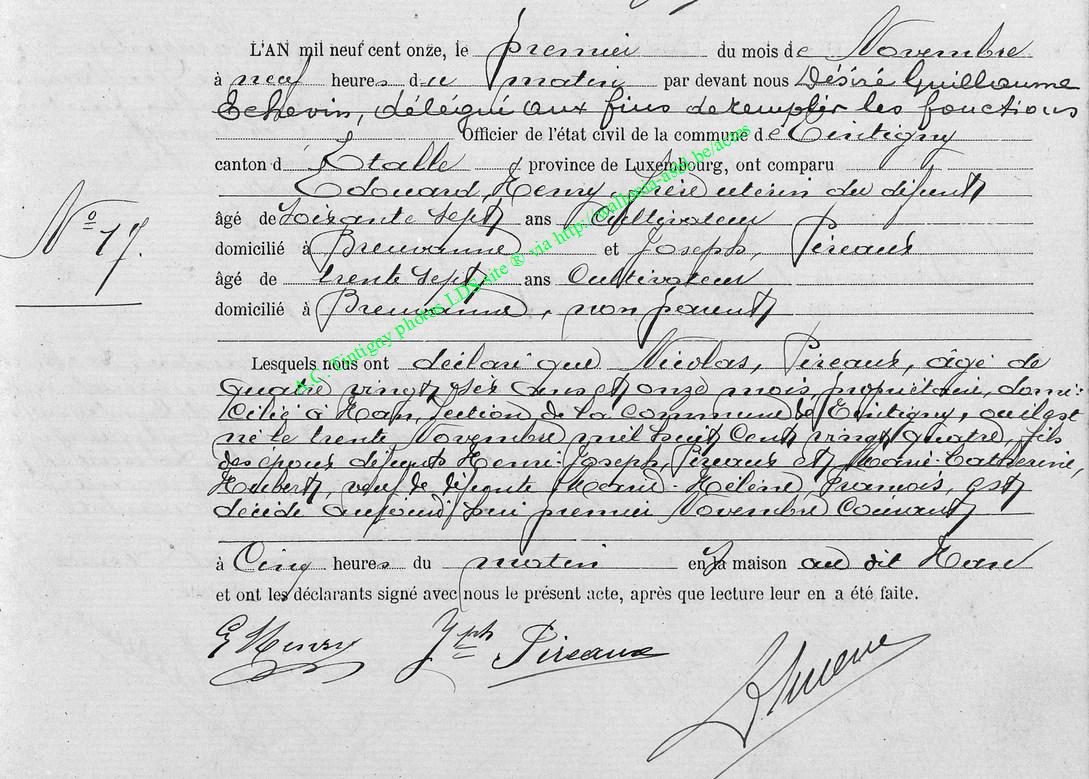 L'AN mil neuf cent onze, le premier du mois de Novembre
à neuf heures du matin par devant nous Désiré Guillaume
Echevin, délégué aux fins de remplir les fonctions
Officier de l'état civil de la commune de Tintigny
canton d' Etalle province de Luxembourg, ont comparu
Edouard, Henry, frère utérin du défunt
âgé de soixante sept ans Cultivateur
N° 17.
domicilié à Breuvanne et Joseph, Pireaux
âgé de trente sept ans Cultivateur
domicilié à Breuvanne, non parent
Lesquels nous ont déclaré que Nicolas, Pireaux, âgé de
quatre vingt six ans et onze mois, propriétaire, domi-
cilié à Han, section de la commune de Tintigny, où il est
né le trente Novembre mil huit cent vingt quatre, fils
des époux défunts Henri-Joseph, Pireaux et Marie-Catherine,
Hubert, veuf de défunte Marie-Hélène, François, est
décédé aujourd'hui premier Novembre courant
à Cinq heures du matin en la maison au dit Han
et ont les déclarants signé avec nous le présent acte, après que lecture leur en a été faite.
E Henry Jph Pireaux
A.C. Tintigny photos LDS site ® via http://wallonia-asbl.be/actes